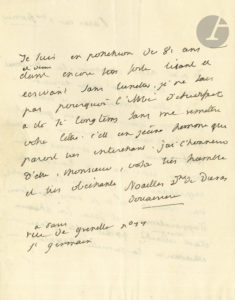 Je suis en possession de 81 ans
et vieux
étant encore très forte lisant et
écrivant sans lunettes, je ne sais
pas pourquoi l'abbé
a été si longtems sans me remettre
votre lettre. c'est un jeune homme qui
paroit très interessant. j'ai l'honneur
D'etre, Monsieur, votre très humble
et très obéissante Noailles de Duras
Douairiere
à Paris
rue de grenelle n°
st germain